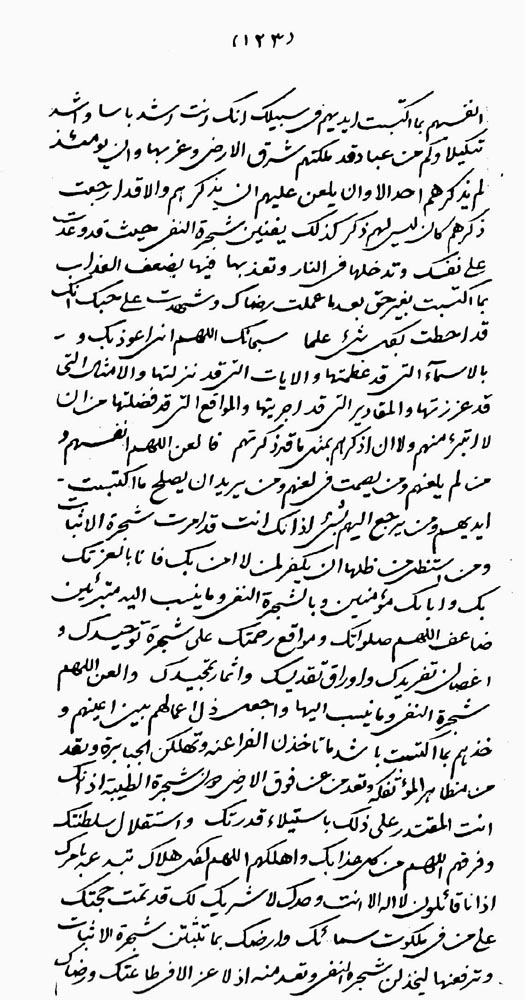 (١٢٣)
انفسهم بما اكتسبت ايديهم في سبيلك انك انت اشد باسا واشد
تنكيلا وكم من عباد قد ملكتهم شرق الارض وغربها وان يومئذ
لم يذكرهم احد الا وان يلعن عليهم ان يذكرهم والاقدار رجعت
ذكرهم كان ليس لهم ذكر كذلك يفنين شجرة النفي حيث قد وعدت
على نفسك وتدخلها في النار وتعذبها فيها بضعف العذاب
بما اكتسبت بغير حق بعد ما عملت رضاك وشهدت على حبك انك
قد احطت بكل شيء علما سبحانك اللهم اني اعوذ بك و
بالاسماء التي قد عظمتها والايات التي قد نزلتها والامثال التي
قد عززتها والمقادير التي قد اجريتها والمواقع التي قد فضلتها من ان
لا اتبرء منهم ولا ان اذكرهم بمثل ما قد ذكرتهم فالعن اللهم انفسهم و
من لم يلعنهم ومن يصمت في لعنهم ومن يريد ان يصلح ما اكتسبت
ايديهم ومن يرجع اليهم بشيء اذ انك انت قد امرت شجرة الاثبات
ومن استظل من ظلها ان يكفرن لمن لا امن بك فانا بالعزتك
بك واياك مؤمنين وبالشجرة النفي وما ينسب اليه متبرئين
ضاعف اللهم صلواتك ومواقع رحمتك على شجرة توحيدك و
اغصان تفريدك واوراق تقديسك واثمار تمجيدك والعن اللهم
شجرة النفي وما ينسب اليها واجعل ذل اعمالهم بين اعينهم و
خذهم بما اكتسبت باشد ما تاخذن الفراعنه وتهلكن الجبابرة وتعد
من مظاهر المؤتفكه وتعد من عن فوق الارض دون شجرة الطيبة اذ انك
انت المقتدر على ذلك باستيلاء قدرتك واستقلال سلطنتك
وفرقهم اللهم من كل عذابك واهلكهم اللهم لكل هلاك تبدعه بامرك
اذ انا قائلون لا اله الا انت وحدك لا شريك لك قد تمت حجتك
على من في ملكوت سمائك وارضك بما تثبتن شجرة الاثبات
وترفعنها ليخذلن شجرة النفي وتعدمنه اذ لا عز الا في طاعتك ورضاك